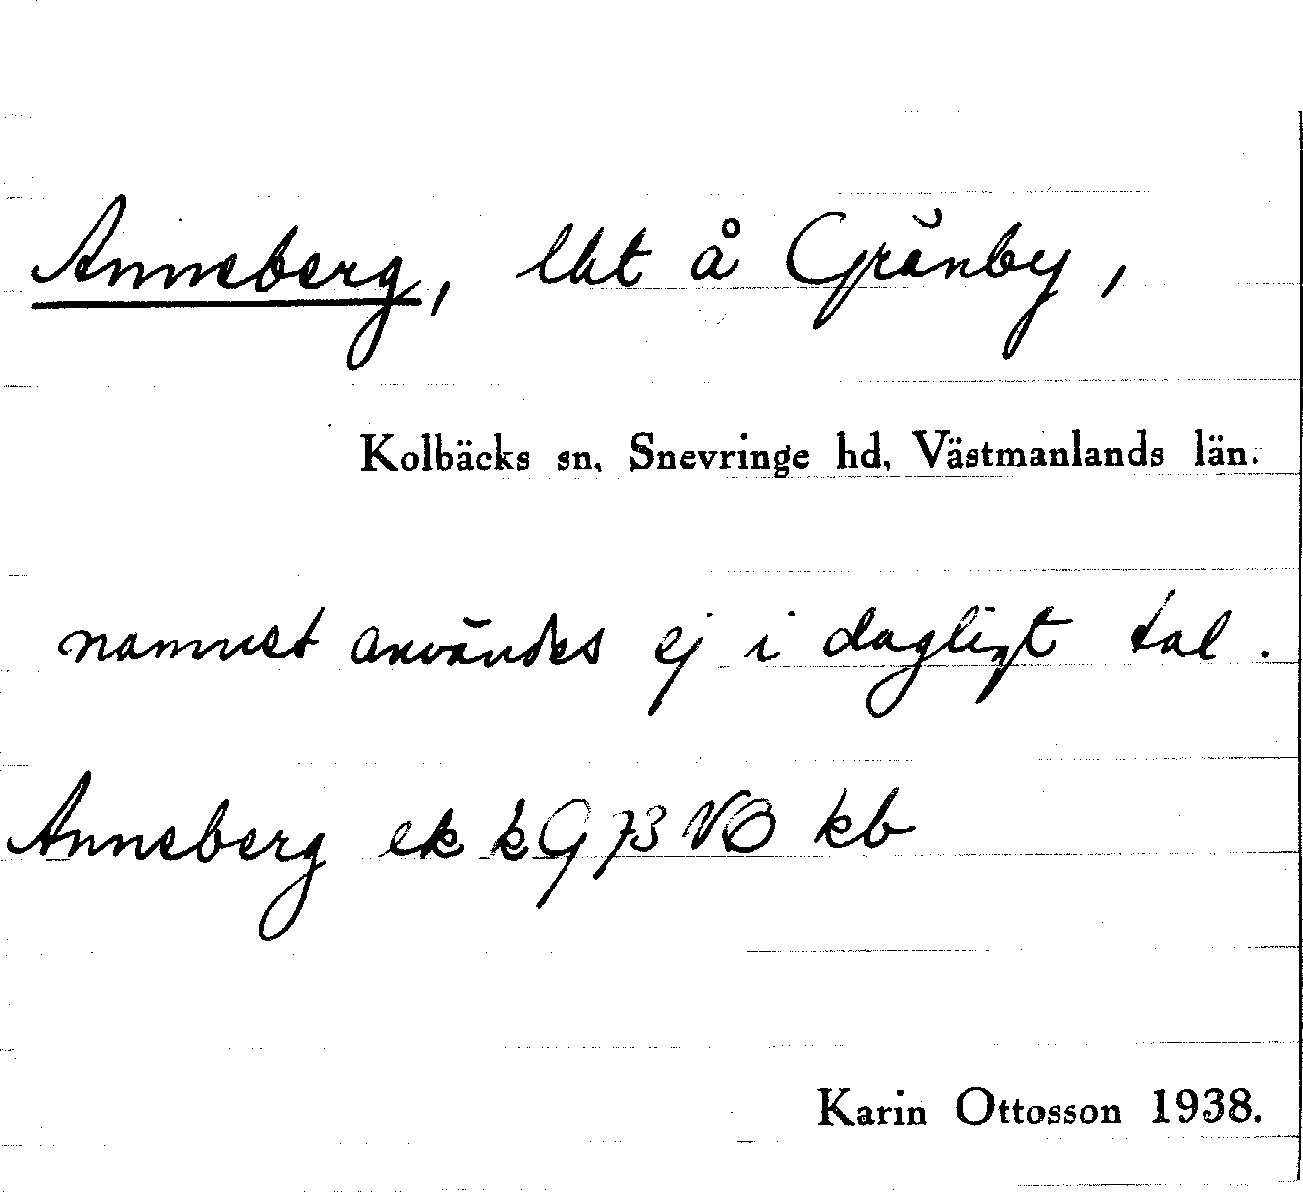 Anneberg, lht å Gränby,
Kolbäcks sn, Snevringe hd, Västmanlands län.
namnet användes ej i dagligt tal.
Anneberg ek k G 73 VO kb
Karin Ottosson 1938.